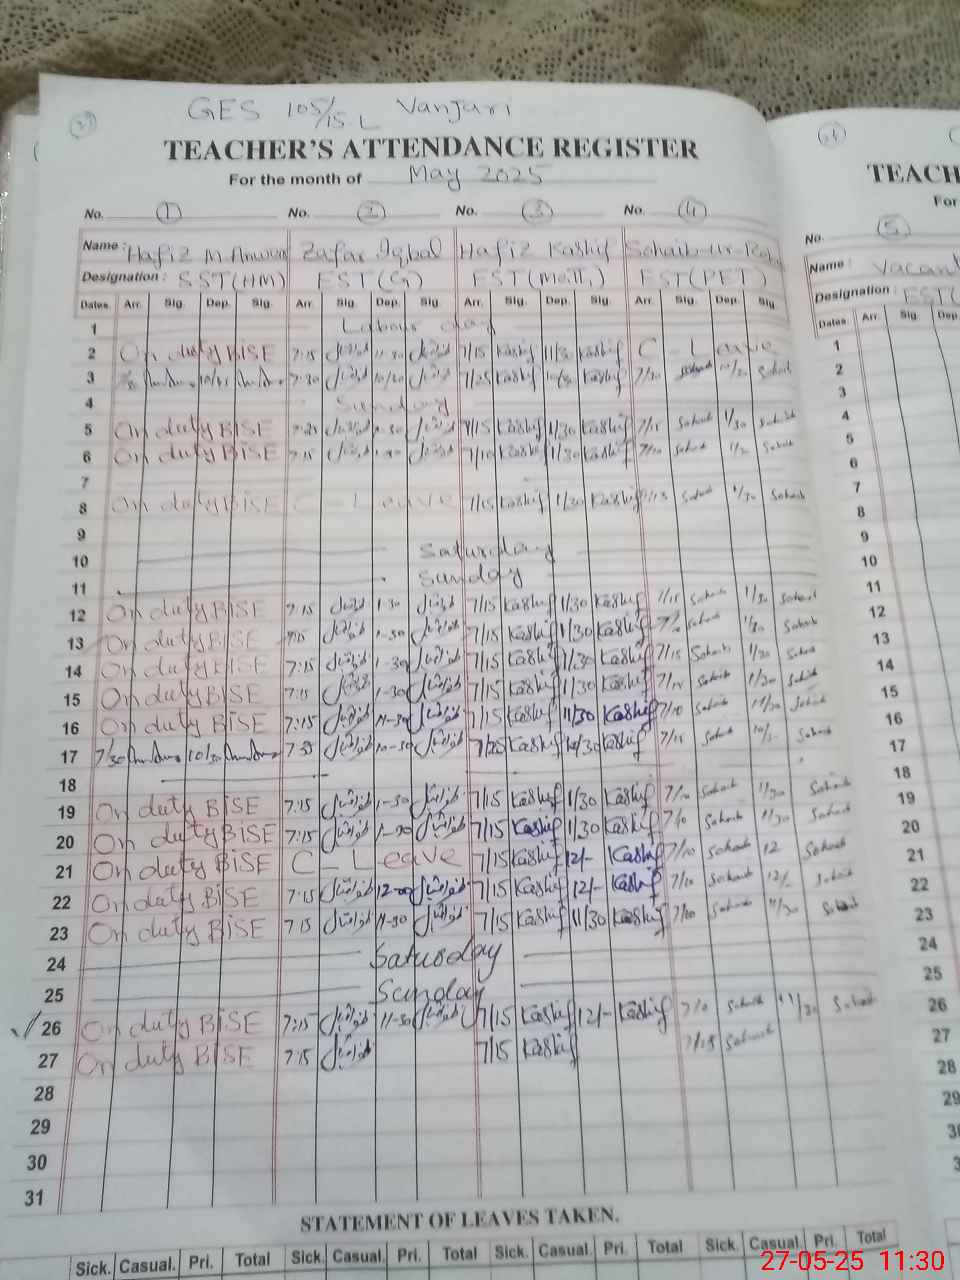 GES 105/15 L Vanjari
TEACHER'S ATTENDANCE REGISTER
For the month of May 2025
No. 1 No. 2 No. 3 No. 4
Name: Hafiz M Anwar Zafar Iqbal Hafiz Kashif Sohaib-ur-Reh
Designation: SST(HM) EST(G) EST(Math) EST(PET)
Dates. Arr. Sig. Dep. Sig. Arr. Sig. Dep. Sig. Arr. Sig. Dep. Sig. Arr. Sig. Dep. Sig.
1 Labour day
2 On duty BISE 7:15 ظفراقبال 11-30 ظفراقبال 7/15 Kashif 11/30 Kashif C-Leave
3 10/ 7:30 ظفراقبال 10/ ظفراقبال 7/25 Kashif Kashif 7/30 Sohaib Sohaib
4 Sunday
5 On duty BISE ظفراقبال ظفراقبال 7/15 Kashif 1/30 Kashif 7/15 Sohaib 1/30 Sohaib
6 On duty BISE 7:15 ظفراقبال ظفراقبال 7/10 Kashif 1/30 Kashif 7/10 Sohaib Sohaib
7
8 On duty BISE C-Leave 7/15 Kashif 1/30 Kashif 7/15 Sohaib 1/30 Sohaib
9
10 Saturday
11 Sunday
12 On duty BISE 7:15 ظفراقبال 1-30 ظفراقبال 7/15 Kashif 1/30 Kashif 7/15 Sohaib 1/30 Sohaib
13 On duty BISE 7:15 ظفراقبال 1-30 ظفراقبال 7/15 Kashif 1/30 Kashif Sohaib 1/30 Sohaib
14 On duty BISE 7:15 ظفراقبال 1-30 ظفراقبال 7/15 Kashif 1/30 Kashif 7/15 Sohaib 1/30 Sohaib
15 On duty BISE 7:15 ظفراقبال 1-30 ظفراقبال 7/15 Kashif 1/30 Kashif 7/15 Sohaib 1/30 Sohaib
16 On duty BISE 7:15 ظفراقبال 11-30 ظفراقبال 7/15 Kashif 11/30 Kashif 7/10 Sohaib 11/30 Sohaib
17 7/30 10/30 ظفراقبال 10-30 ظفراقبال 7/25 Kashif 10/30 Kashif 7/15 Sohaib Sohaib
18
19 On duty BISE 7:15 ظفراقبال 1-30 ظفراقبال 7/15 Kashif 1/30 Kashif 7/10 Sohaib Sohaib
20 On duty BISE 7:15 ظفراقبال ظفراقبال 7/15 Kashif 1/30 Kashif 7/10 Sohaib Sohaib
21 On duty BISE C-Leave 7/15 Kashif 12/- Kashif 7/10 Sohaib 12 Sohaib
22 On duty BISE 7:15 ظفراقبال 12-00 ظفراقبال 7/15 Kashif 12/- Kashif 7/10 Sohaib 12/- Sohaib
23 On duty BISE 7:15 ظفراقبال 11-30 ظفراقبال 7/15 Kashif 11/30 Kashif 7/10 Sohaib 11/30 Sohaib
24 Saturday
25 Sunday
26 On duty BISE 7:15 ظفراقبال 11-30 ظفراقبال 7/15 Kashif 12/- Kashif 7/10 Sohaib 11/30 Sohaib
27 On duty BISE 7:15 ظفراقبال 7/15 Kashif 7/15 Sohaib
28
29
30
31
STATEMENT OF LEAVES TAKEN.
Sick. Casual. Pri. Total Sick. Casual. Pri. Total Sick. Casual. Pri. Total Sick. Casual. Pri. Total
TEACH
For
No. 5
Name: Vacant
Designation: EST(
Dates. Arr. Sig. Dep
1
2
3
4
5
6
7
8
9
10
11
12
13
14
15
16
17
18
19
20
21
22
23
24
25
26
27
28
29
27-05-25 11:30